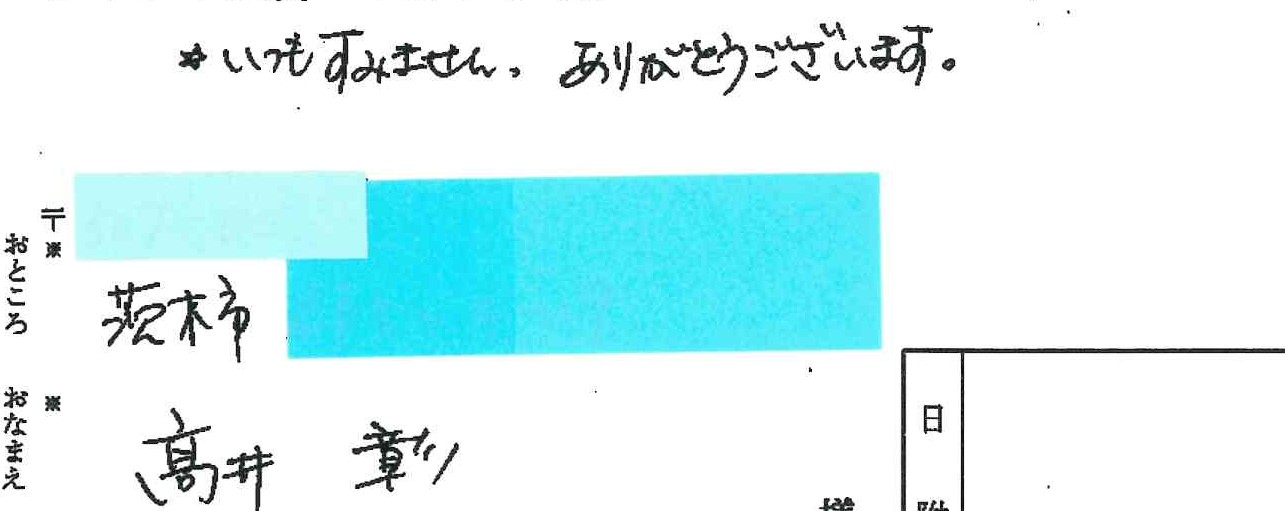 *いつもすみません。ありがとうございます。
〒※
おところ
茨木市
※
おなまえ
高井 彰
様
日附